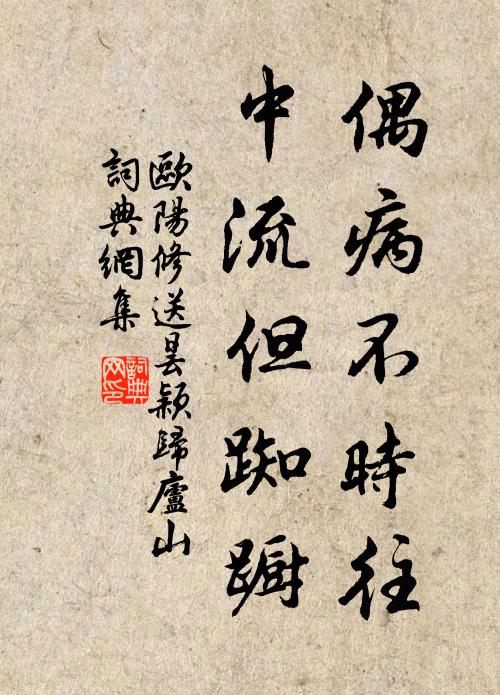 偶病不時往
中流但踟躕
歐陽修送曇穎歸廬山
詞典網集
詞典
网印